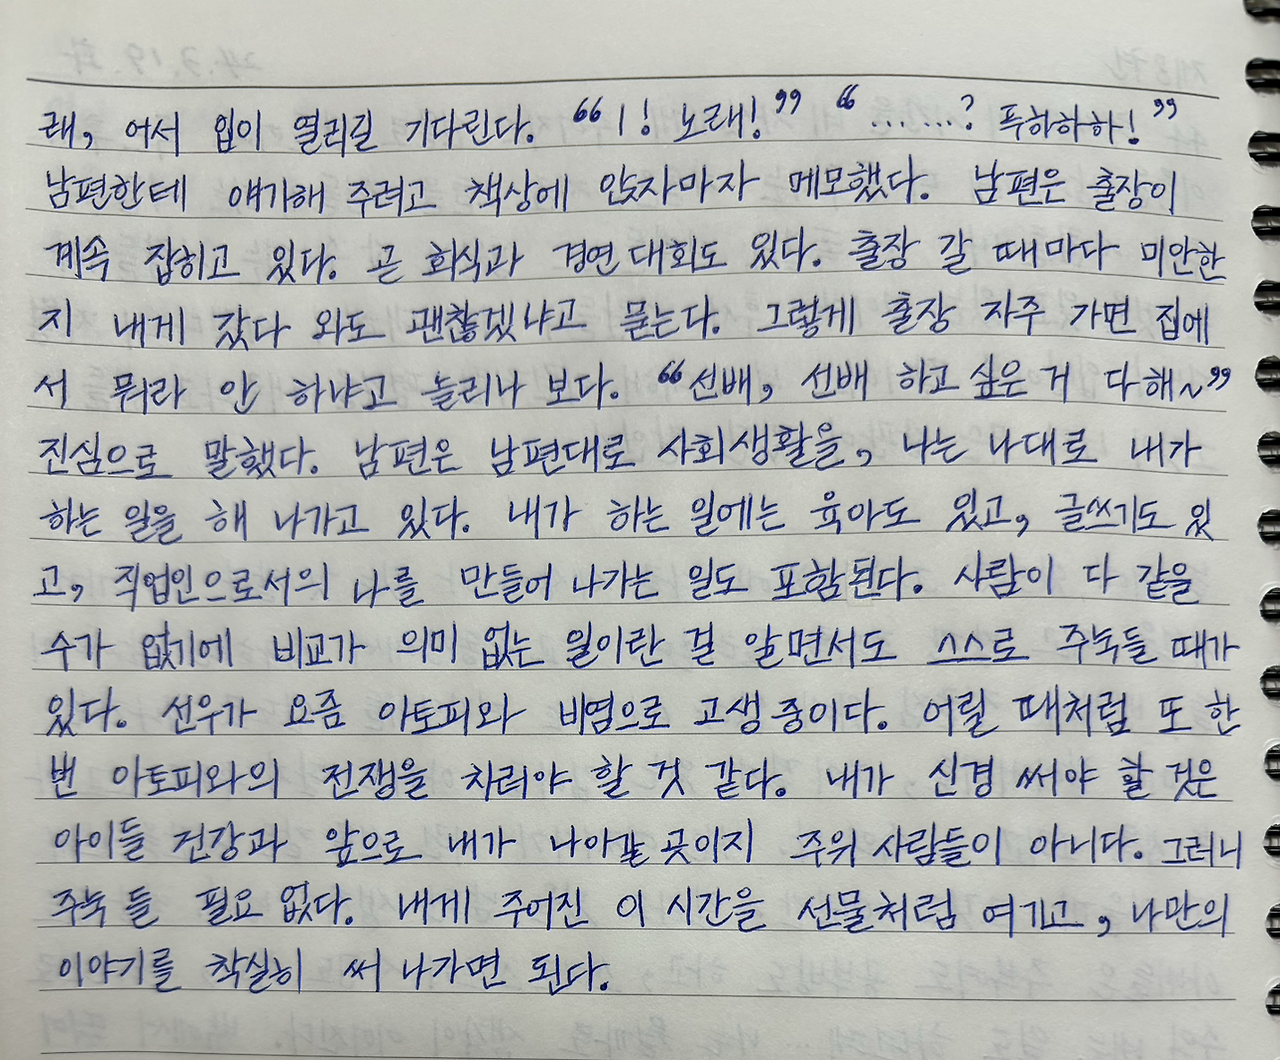 래, 어서 입이 열리길 기다린다. "1! 노래!" "......? 푸하하하!"
남편한테 얘기해 주려고 책상에 앉자마자 메모했다. 남편은 출장이
계속 잡히고 있다. 곧 회식과 경연대회도 있다. 출장 갈 때마다 미안한
지 내게 갔다 와도 괜찮겠냐고 묻는다. 그렇게 출장 자주 가면 집에
서 뭐라 안 하냐고 놀리나 보다. "선배, 선배 하고 싶은 거 다 해~"
진심으로 말했다. 남편은 남편대로 사회생활을, 나는 나대로 내가
하는 일을 해 나가고 있다. 내가 하는 일에는 육아도 있고, 글쓰기도 있
고, 직업인으로서의 나를 만들어 나가는 일도 포함된다. 사람이 다 같을
수가 없기에 비교가 의미 없는 일이란 걸 알면서도 스스로 주눅들 때가
있다. 선우가 요즘 아토피와 비염으로 고생 중이다. 어릴 때처럼 또 한
번 아토피와의 전쟁을 치러야 할 것 같다. 내가 신경 써야 할 것은
아이들 건강과 앞으로 내가 나아갈 곳이지 주위 사람들이 아니다. 그러니
주눅 들 필요 없다. 내게 주어진 이 시간을 선물처럼 여기고, 나만의
이야기를 착실히 써 나가면 된다.